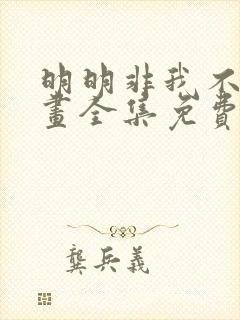 明明非我不
畫全集免費
龔兵義